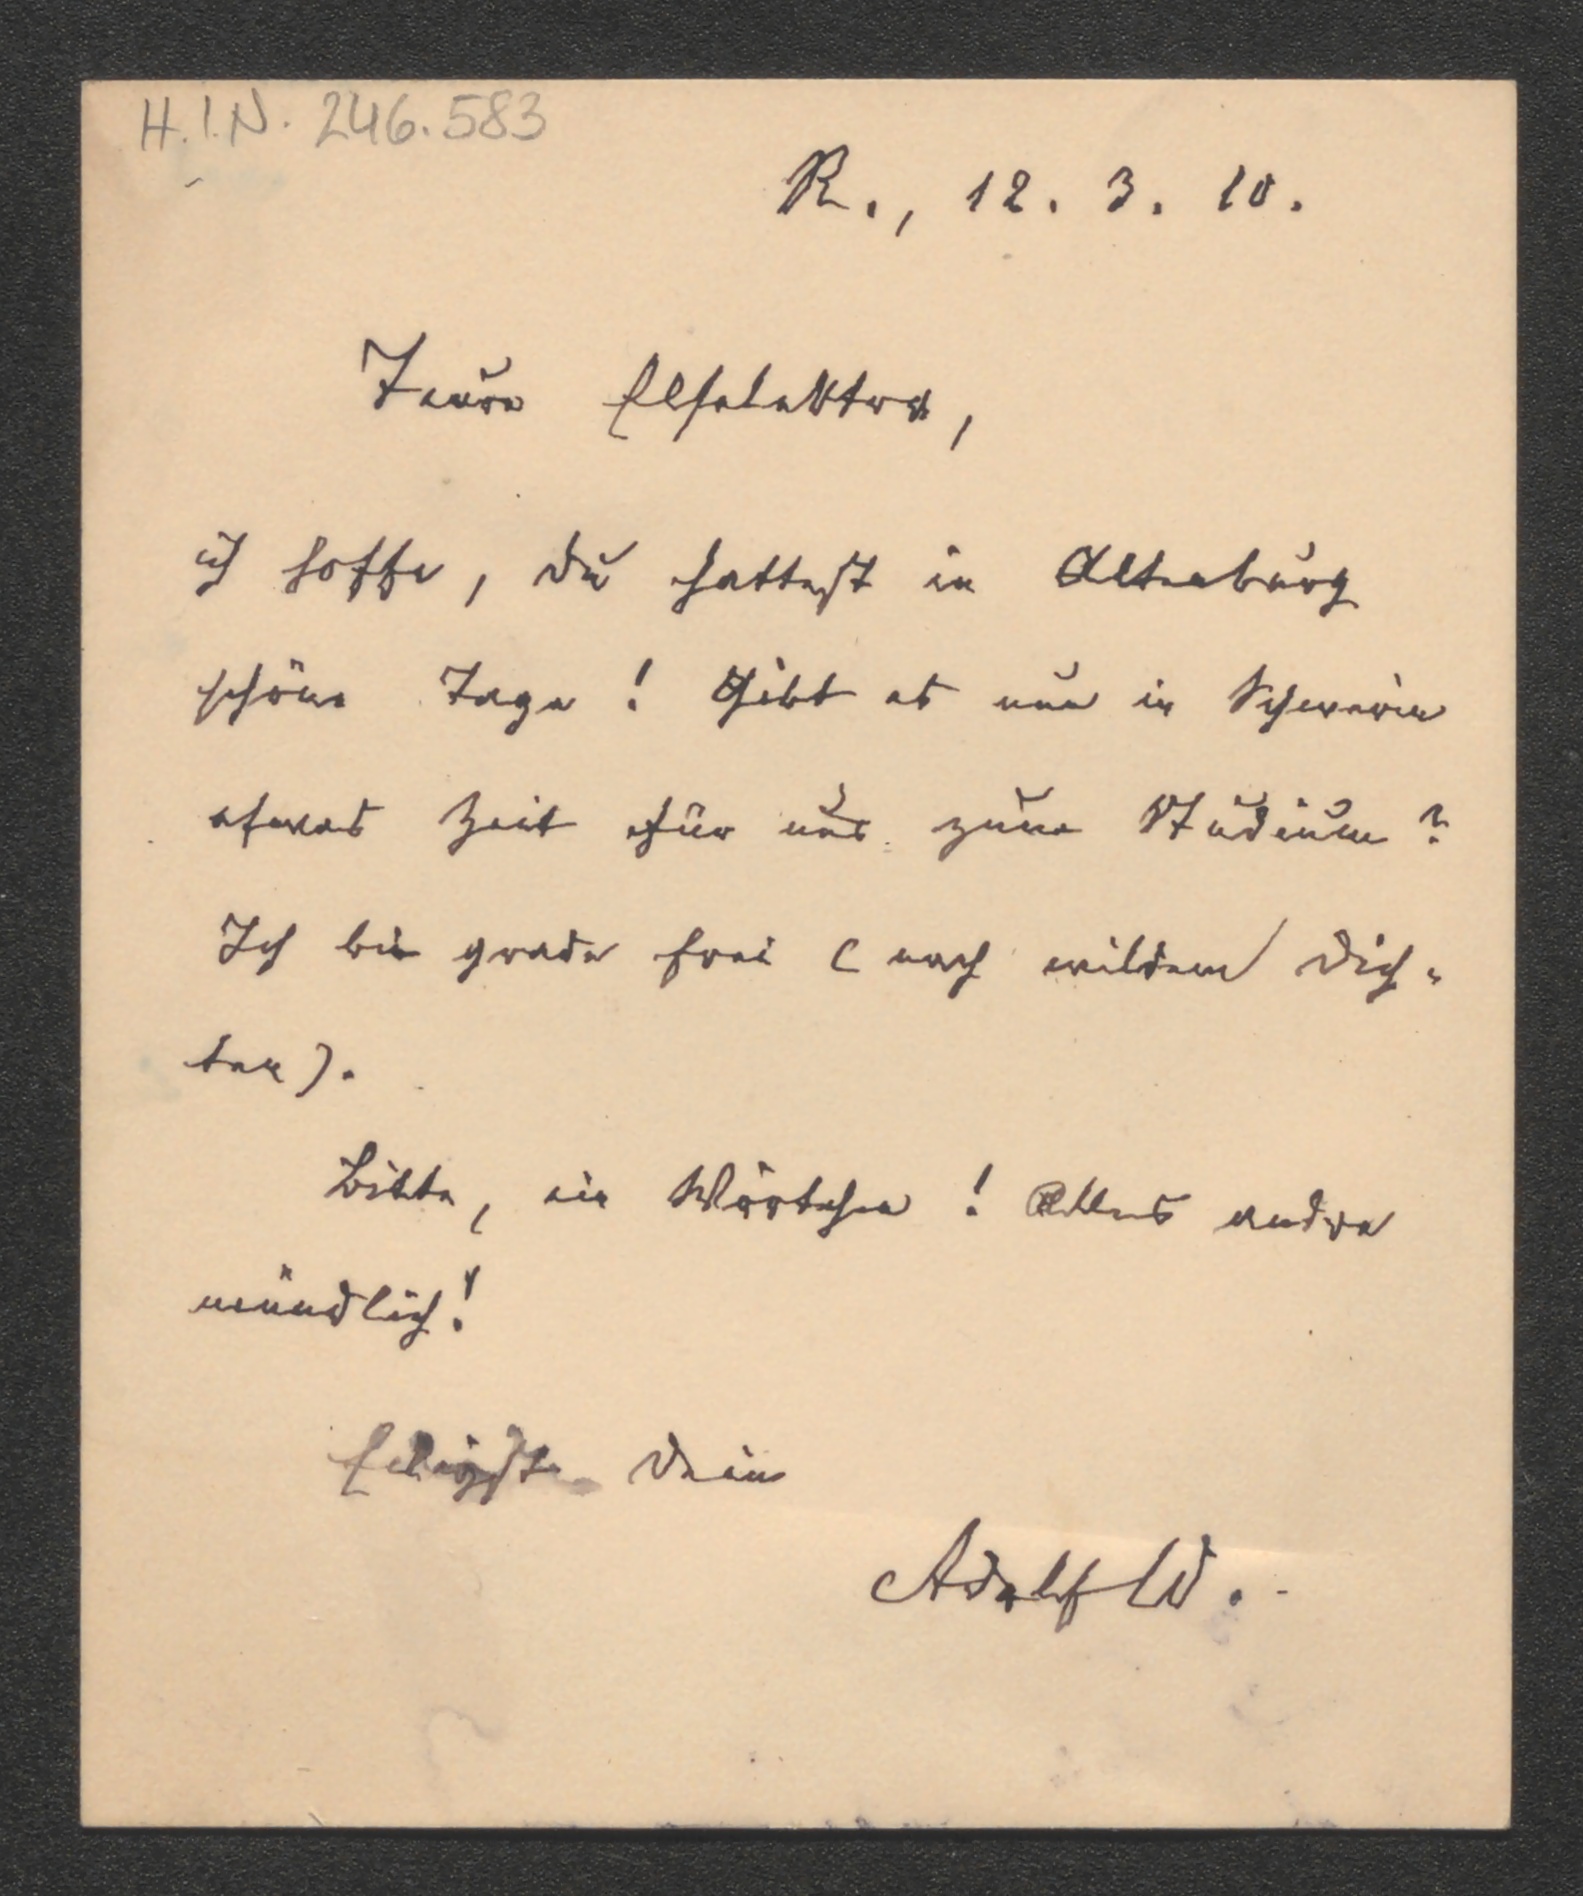 H.I.N. 246.583
R., 12. 3. 10.
Teure Elselektra,
ich hoffe, du hattest in Altenburg
schöne Tage! Gibt es nun in Schwerin
etwas Zeit für uns zum Studium?
Ich bin grade frei (nach wildem Dich-
ten).
Bitte, ein Wörtchen! Alles andre
mündlich!
Eiligst Dein
Adolf W.